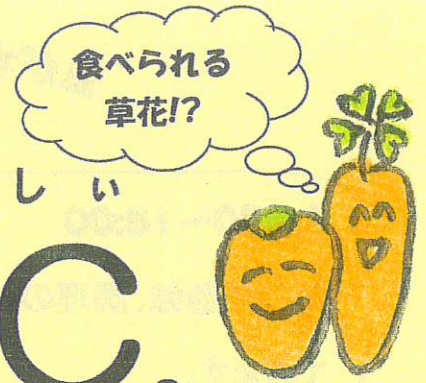 食べられる
草花!?
しぃ
C.